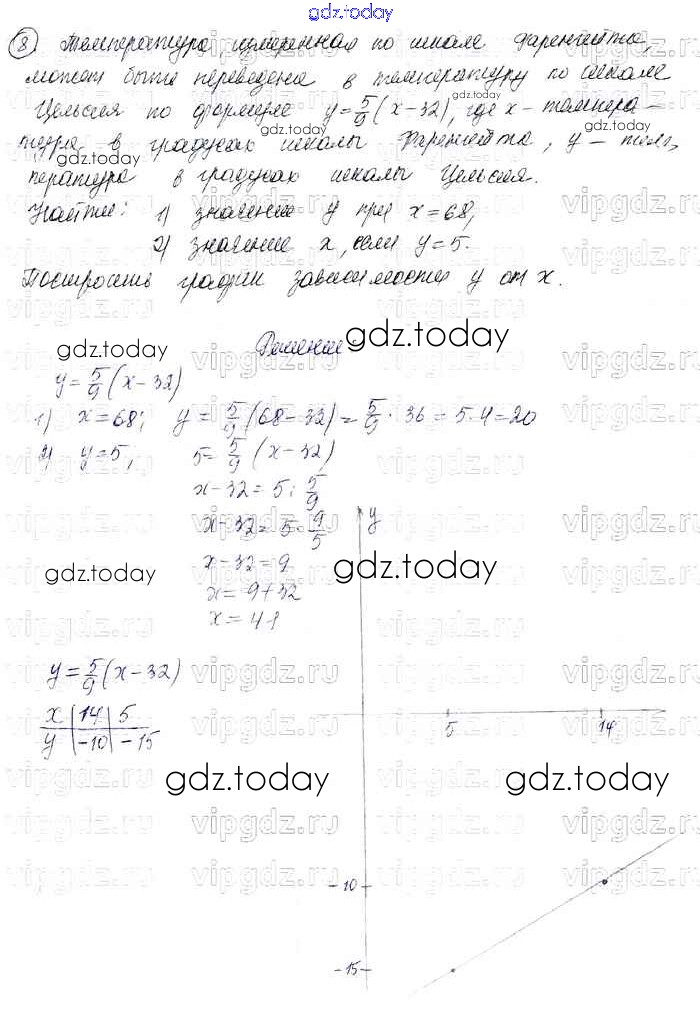 gdz.today
8 Температура, измеренная по шкале Фаренгейта,
может быть переведена в температуру по шкале
Цельсия по формуле y=5/9(x-32), где x - темпера-
тура в градусах шкалы Фаренгейта, y - тем-
пература в градусах шкалы Цельсия.
Найти: 1) значение y при x=68,
2) значение x, если y=5.
Построить график зависимости y от x.
Решение:
y=5/9(x-32)
1) x=68; y=5/9(68-32)=5/9·36=5·4=20
2) y=5; 5=5/9(x-32)
x-32=5:5/9
x-32=5·9/5
x-32=9
x=9+32
x=41
y=5/9(x-32)
x|14|5
y|-10|-15
y
5 14
-10
-15
gdz.today
vipgdz.ru